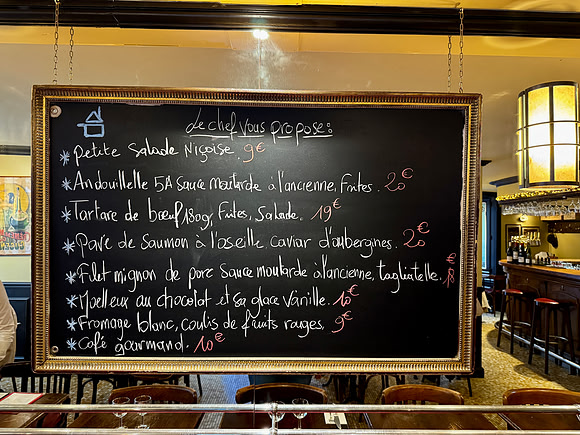 Le chef vous propose:
* Petite Salade Niçoise. 9€
* Andouillette 5A sauce moutarde à l'ancienne, Frites. 20€
* Tartare de bœuf 180g, Frites, Salade. 19€
* Pavé de Saumon à l'oseille caviar d'aubergines. 20€
* Filet mignon de porc sauce moutarde à l'ancienne, tagliatelle. 18€
* Moelleux au chocolat et sa glace vanille. 10€
* Fromage blanc, coulis de fruits rouges. 9€
* Café gourmand. 10€